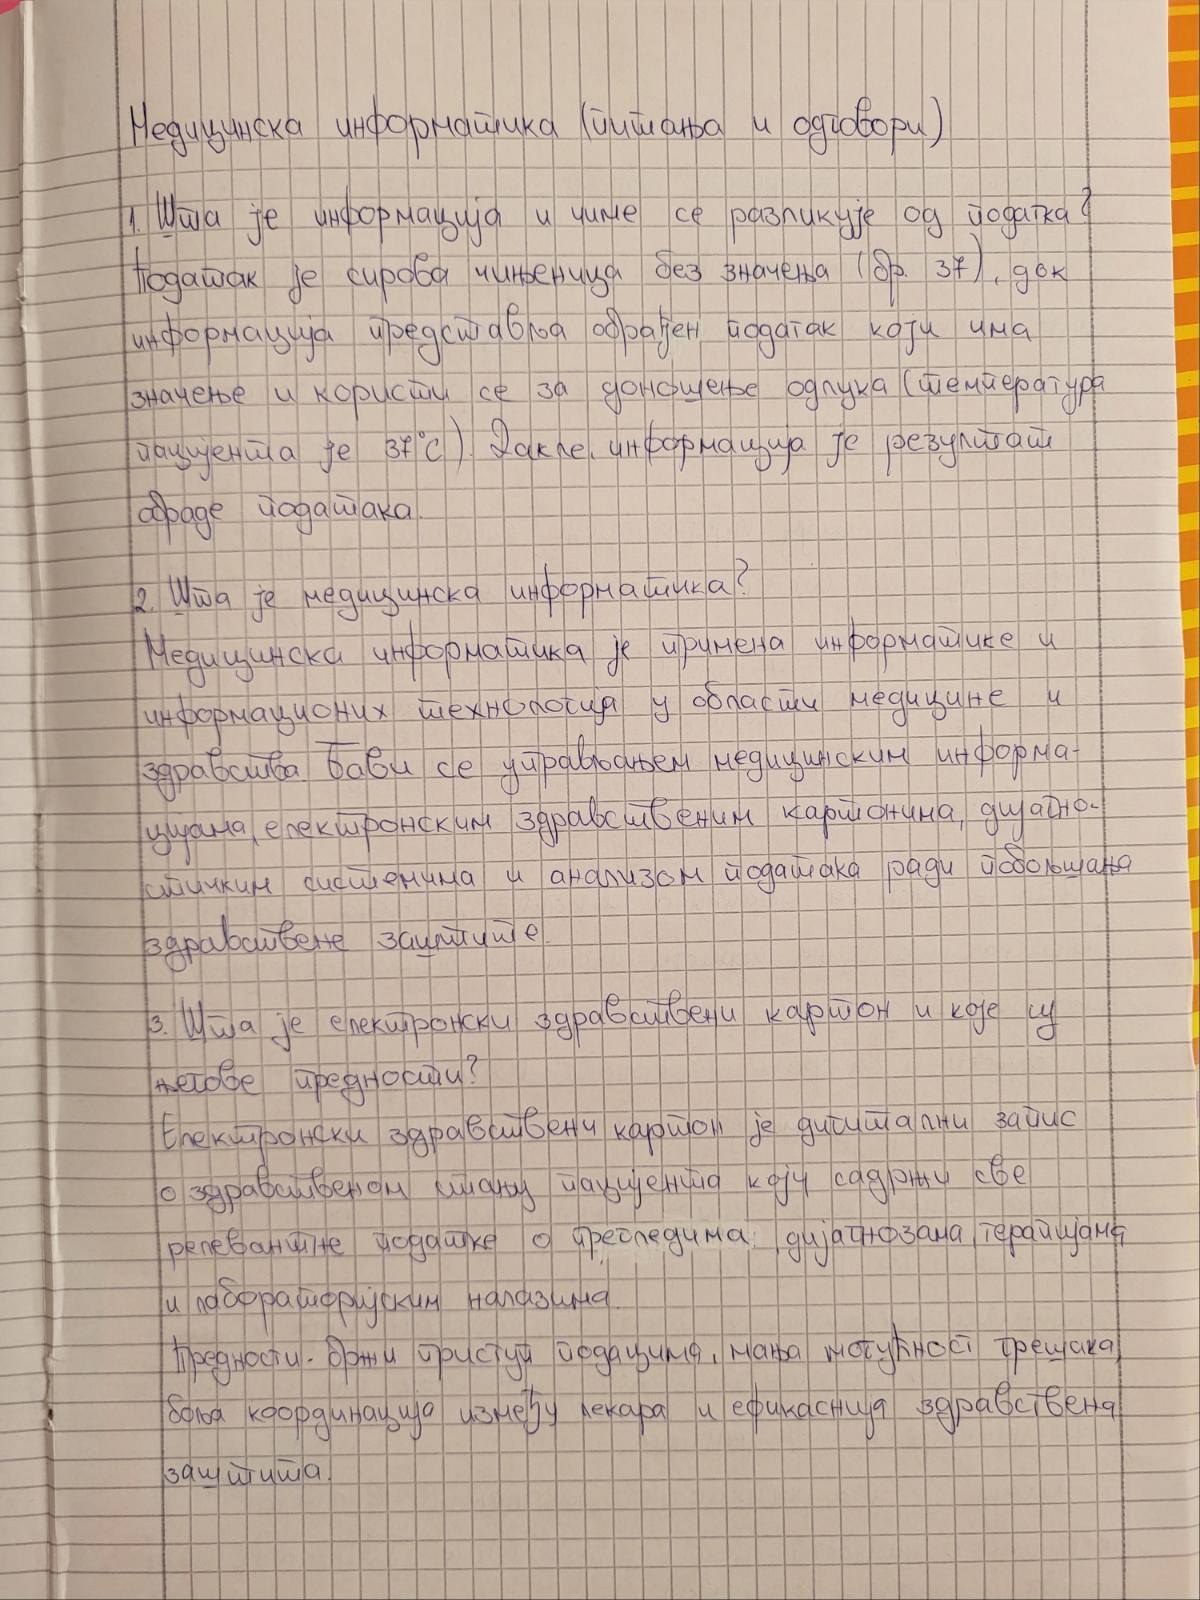 Медицинска информатика (питања и одговори)
1. Шта је информација и чиме се разликује од податка?
Податак је сирова чињеница без значења (бр. 37), док
информација представља обрађен податак који има
значење и користи се за доношење одлука (температура
пацијента је 37°C). Дакле, информација је резултат
обраде података.
2. Шта је медицинска информатика?
Медицинска информатика је примена информатике и
информационих технологија у области медицине и
здравства. Бави се управљањем медицинским информа-
цијама, електронским здравственим картонима, дијагно-
стичким системима и анализом података ради побољшања
здравствене заштите.
3. Шта је електронски здравствени картон и које су
његове предности?
Електронски здравствени картон је дигитални запис
о здравственом стању пацијента који садржи све
релевантне податке о прегледима, дијагнозама, терапијама
и лабораторијским налазима.
Предности - бржи приступ подацима, мања могућност грешака,
боља координација између лекара и ефикаснија здравствена
заштита.